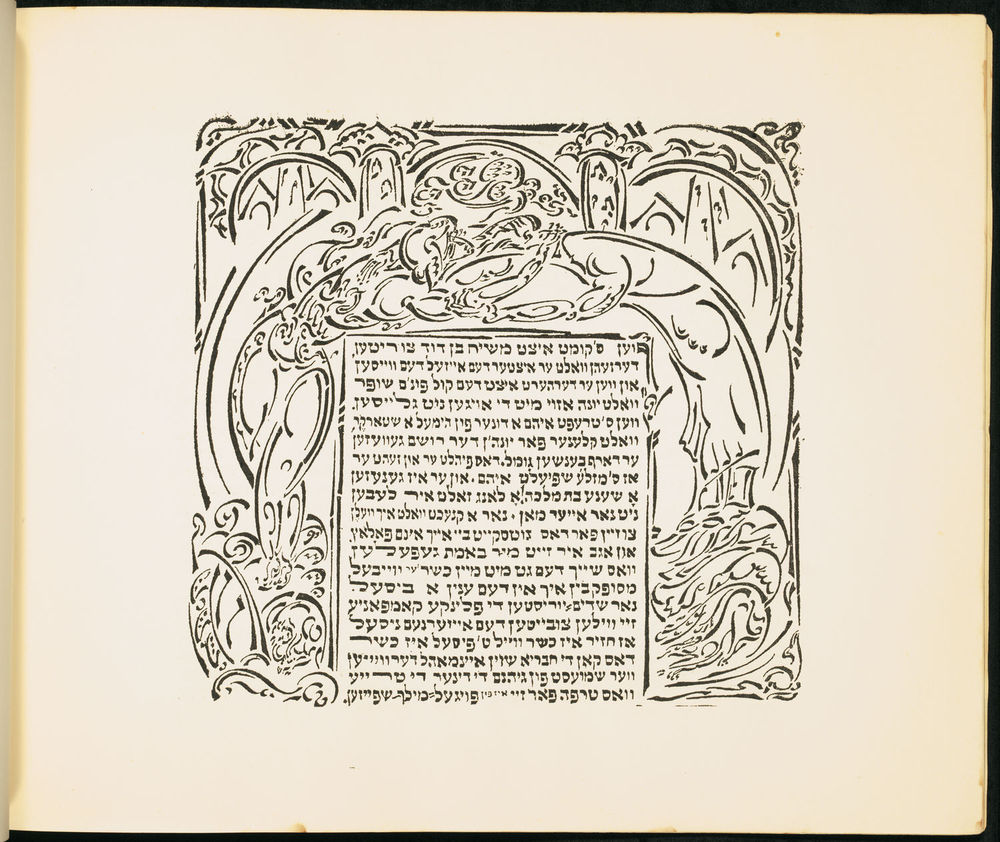 ווען ס'קומט איצט משיח בן דוד צו רייטען,
דערזעהן וואלט ער איצטער דעם אייזעל דעם ווייסען
און ווען ער דערהערט איצט דעם קול פונ'ם שופר
וואלט יונה אזוי מיט די אויגען ניט גלייסען.
ווען ס'טרעפט איהם א דונער פון הימעל א שטארקער,
וואלט קלענער פאר יונה'ן דער רושם געוועזען
ער דארף בענשען גומל. דאס פיהלט ער און זעהט ער
אז ס'מזלע שפיעלט איהם. און ער איז גענעזען
א שענע בת מלכה! א לאנג זאלט איר לעבען
ניט נאר אייער מאן. נאר א קנעכט וואלט איך וועלן
צו זיין פאר דאס נוטסקייט ביי אייך אינם פאלאץ,
און אגב איר זייט מיר באמת געפעלען
וואס שייך דעם גט מיט מיין כשר'ער ווייבעל
מסופק בין איך אין דעם ענין א ביסעל.
נאר שדים־יוריסטען די פלינקע קאמפאניע
זיי ווילען צובייטען דעם אייזערנעם ניסעל
אז חזיר איז כשר ווייל ט'פיסעל איז כשר
דאס קאן די חבריא שוין איינמאהל דערווייזען
ווער שמועסט פון גיהנם די דינער די טרייע
וואס טרפה פאר זיי איז פון פויגעל־מילך שפייזען.